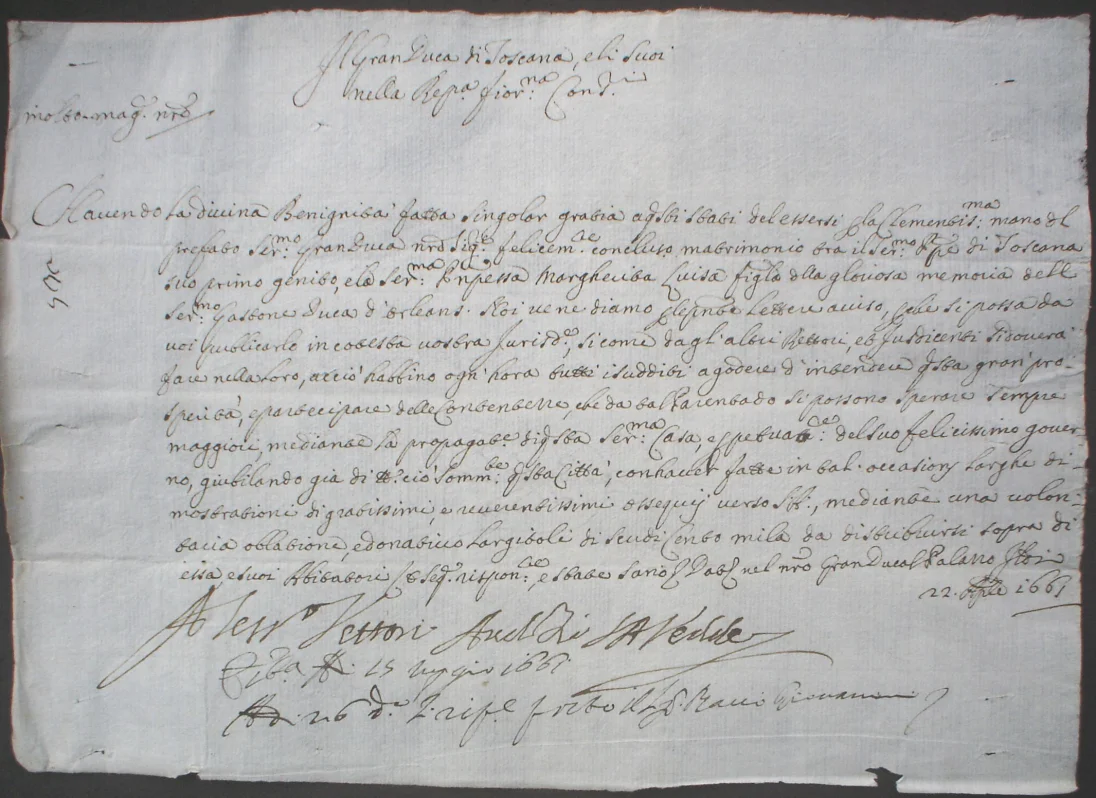 Il Gran Duca di Toscana, e li suoi
nella Repa. fior:na Con:ri
molto mag. nro
Havendo la Divina Benignità fatta singolar gratia a qsti stati del essersi p la Clementis:ma mano dl
prefato Ser:mo Gran Duca nro Sigre felicem:te concluso matrimonio tra il Ser:mo Ppe di Toscana
suo primo genito, e la Ser:ma Pnpessa Margherita Luisa figla dlla gloriosa memoria dell
Ser:mo Gastone Duca d'Orleans. Noi ve ne diamo p la pnte lettera aviso, pche si possa da
voi publicarlo in cotesta vostra Jurisde, si come dagl'altri Rettori, et Jusdicenti si doverà
fare nella loro, acciò habbino ogn'hora tutti i sudditi a godere d'intendere qsta gran pro-
sperità, e partecipare delle Contentezze, che da tal Parentado si possono sperare sempre
maggiori, mediante la propagate: di qsta Ser:ma Casa, e ppetuate: del suo felicissimo gover-
no, giubilando già di tto ciò somm:te qsta Città, con haver fatte in tal occasione larghe di-
mostrationi di gratissimi, e reverentissimi ossequij verso S.A., mediante una volon-
taria oblatione, e donativo largitoli di scudi Cento mila da distribuirsi sopra di
essa, e suoi Abitatori
e state sano Dat nel nro Gran Ducal Palazzo
22. Aple 1661
Aless:o Vettori Aud:
15 maggio 1661
Adi: 26 do: